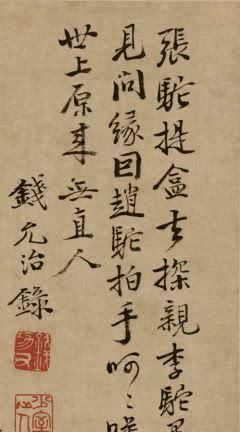 張駝提盒去探親李駝
見問緣因趙駝拍手呵〻
世上原來無直人
錢允治錄